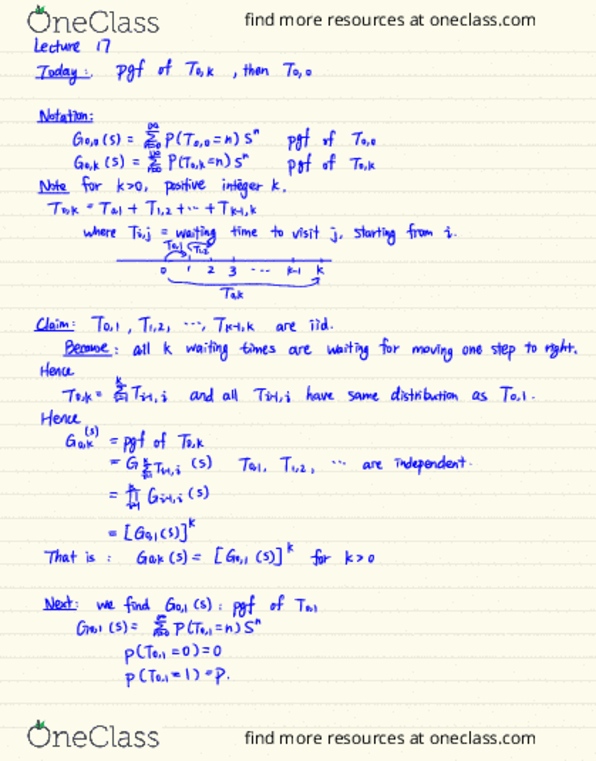 OneClass find more resources at oneclass.com
Lecture 17
Today: pgf of T₀,ₖ , then T₀,₀
Notation:
G₀,₀(s) = Σ_{n=0}^{∞} P(T₀,₀=n) Sⁿ pgf of T₀,₀
G₀,ₖ(s) = Σ_{n=0}^{∞} P(T₀,ₖ=n) Sⁿ pgf of T₀,ₖ
Note for k>0, positive integer k.
T₀,ₖ = T₀,₁ + T₁,₂ + ⋯ + Tₖ₋₁,ₖ
where Tᵢ,ⱼ = waiting time to visit j, starting from i.
T₀,₁ T₁,₂
0 1 2 3 ⋯ k-1 k
T₀,ₖ
Claim: T₀,₁ , T₁,₂, ⋯, Tₖ₋₁,ₖ are iid.
Because: all k waiting times are waiting for moving one step to right.
Hence
T₀,ₖ = Σ_{i=1}^{k} Tᵢ₋₁,ᵢ and all Tᵢ₋₁,ᵢ have same distribution as T₀,₁.
Hence
G₀,ₖ(s) = pgf of T₀,ₖ
= G_{Σ_{i=1}^{k} Tᵢ₋₁,ᵢ} (s) T₀,₁, T₁,₂, ⋯ are independent.
= Π_{i=1}^{k} Gᵢ₋₁,ᵢ(s)
= [G₀,₁(s)]ᵏ
That is : G₀,ₖ(s) = [G₀,₁(s)]ᵏ for k>0
Next: we find G₀,₁(s): pgf of T₀,₁
G₀,₁(s) = Σ_{n=0}^{∞} P(T₀,₁=n) Sⁿ
P(T₀,₁=0)=0
P(T₀,₁=1)=P.
OneClass find more resources at oneclass.com